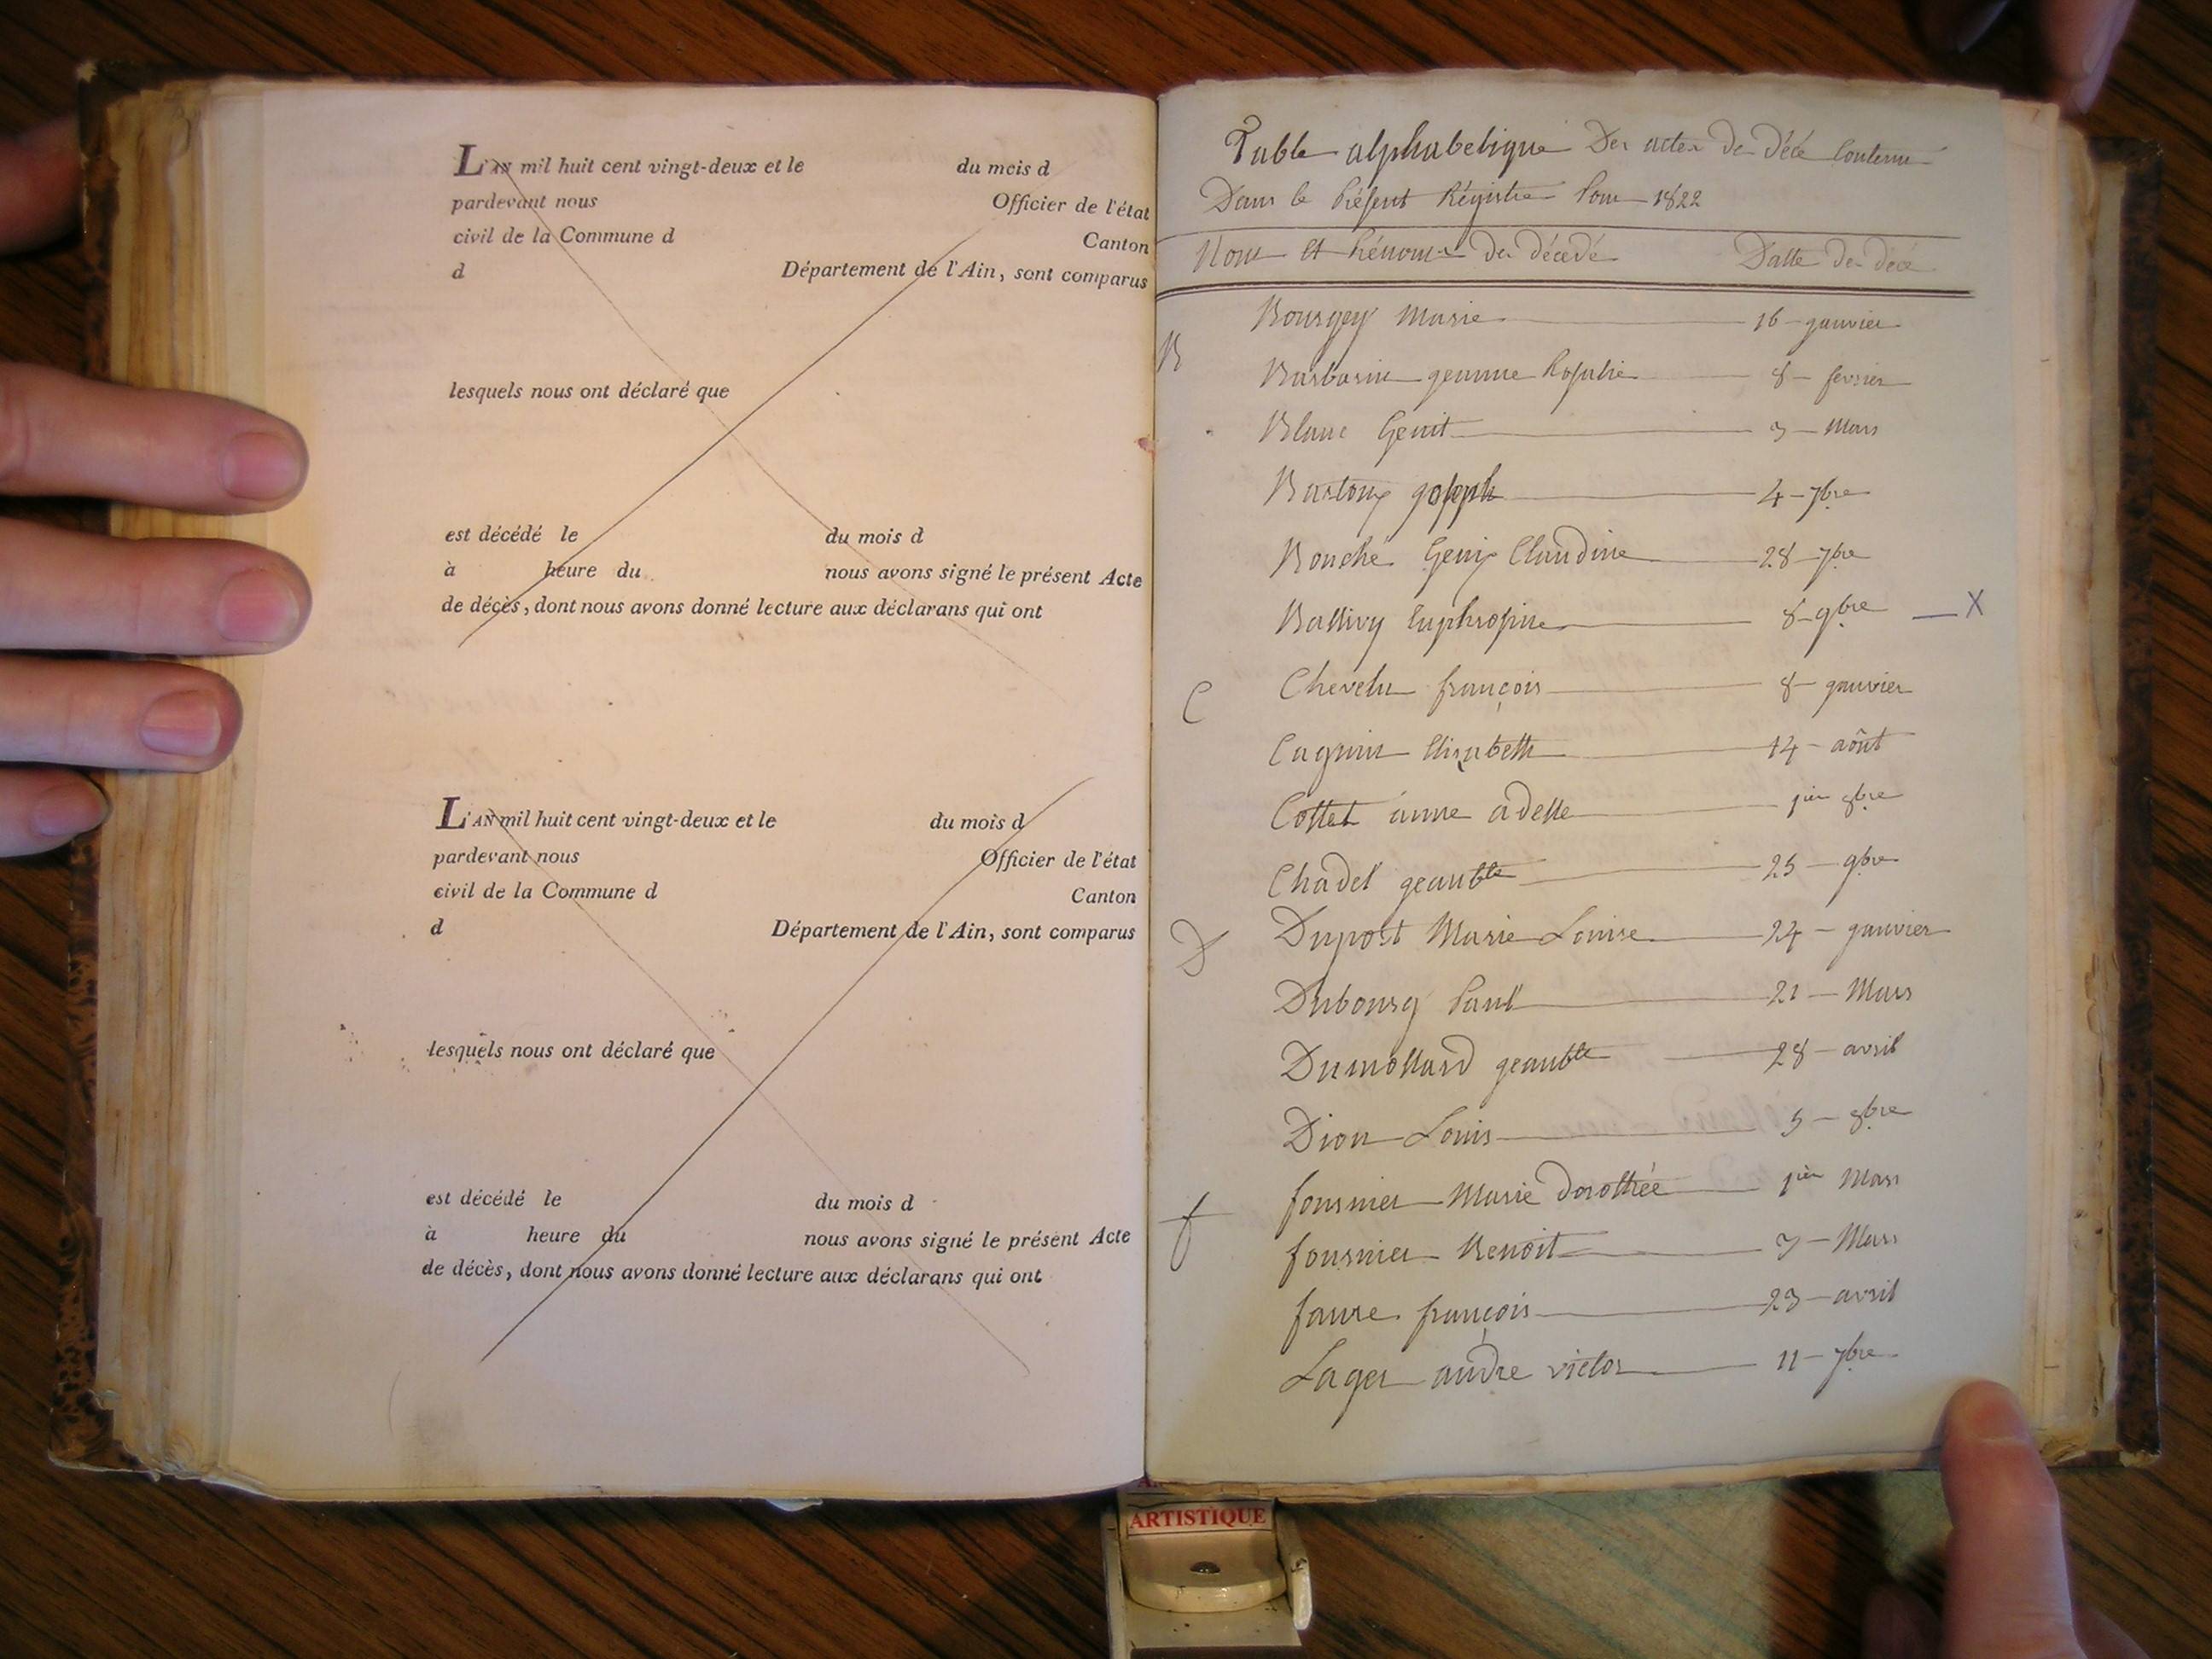 L'AN mil huit cent vingt-deux et le du mois d
pardevant nous Officier de l'état
civil de la Commune d Canton
d Département de l'Ain, sont comparus
lesquels nous ont déclaré que
est décédé le du mois d
à heure du nous avons signé le présent Acte
de décès, dont nous avons donné lecture aux déclarans qui ont
L'AN mil huit cent vingt-deux et le du mois d
pardevant nous Officier de l'état
civil de la Commune d Canton
d Département de l'Ain, sont comparus
lesquels nous ont déclaré que
est décédé le du mois d
à heure du nous avons signé le présent Acte
de décès, dont nous avons donné lecture aux déclarans qui ont
Table alphabetique Des actes de décé Contenu
Dans le présent Régistre Pour 1822
Nom et prénoms des décédé Datte des décé
B
Bourgey Marie 16 - janvier
Barbarin jeanne Rosalie 8 - fevrier
Blanc 3 - Mars
joseph 4 - 7bre
Bouché Claudine 28 7bre
Ballivy Euphrosine 8 - 9bre X
C
Chevelu françois 8 - janvier
Cagnin Elizabeth 14 - août
Collet anne adelle 1ier 8bre
Chadel jeanbte 25 - 9bre
D
Dupost Marie Louise 24 - janvier
Dubourg Paul 21 - Mars
Dumollard jeanbte 28 - avril
Dion Louis 5 - 8bre
f
fournier Marie dorothée 1ier Mars
fournier Benoit 3 - Mars
faure françois 23 - avril
Lager andre victor 11 - 7bre
ARTISTIQUE